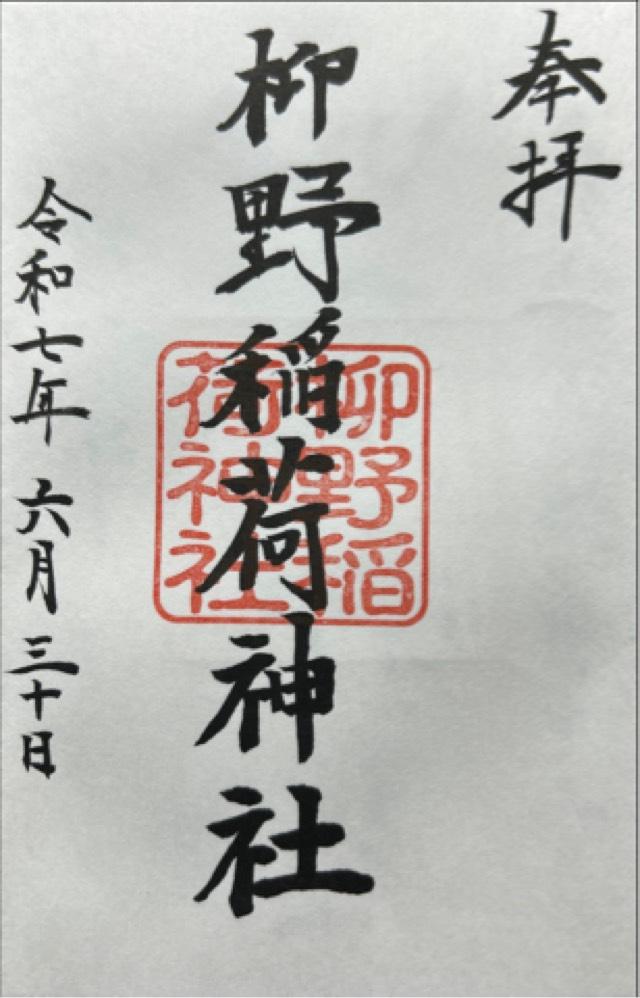 奉拝
柳野稲荷神社
柳野稲
荷神社
令和七年 六月 三十日